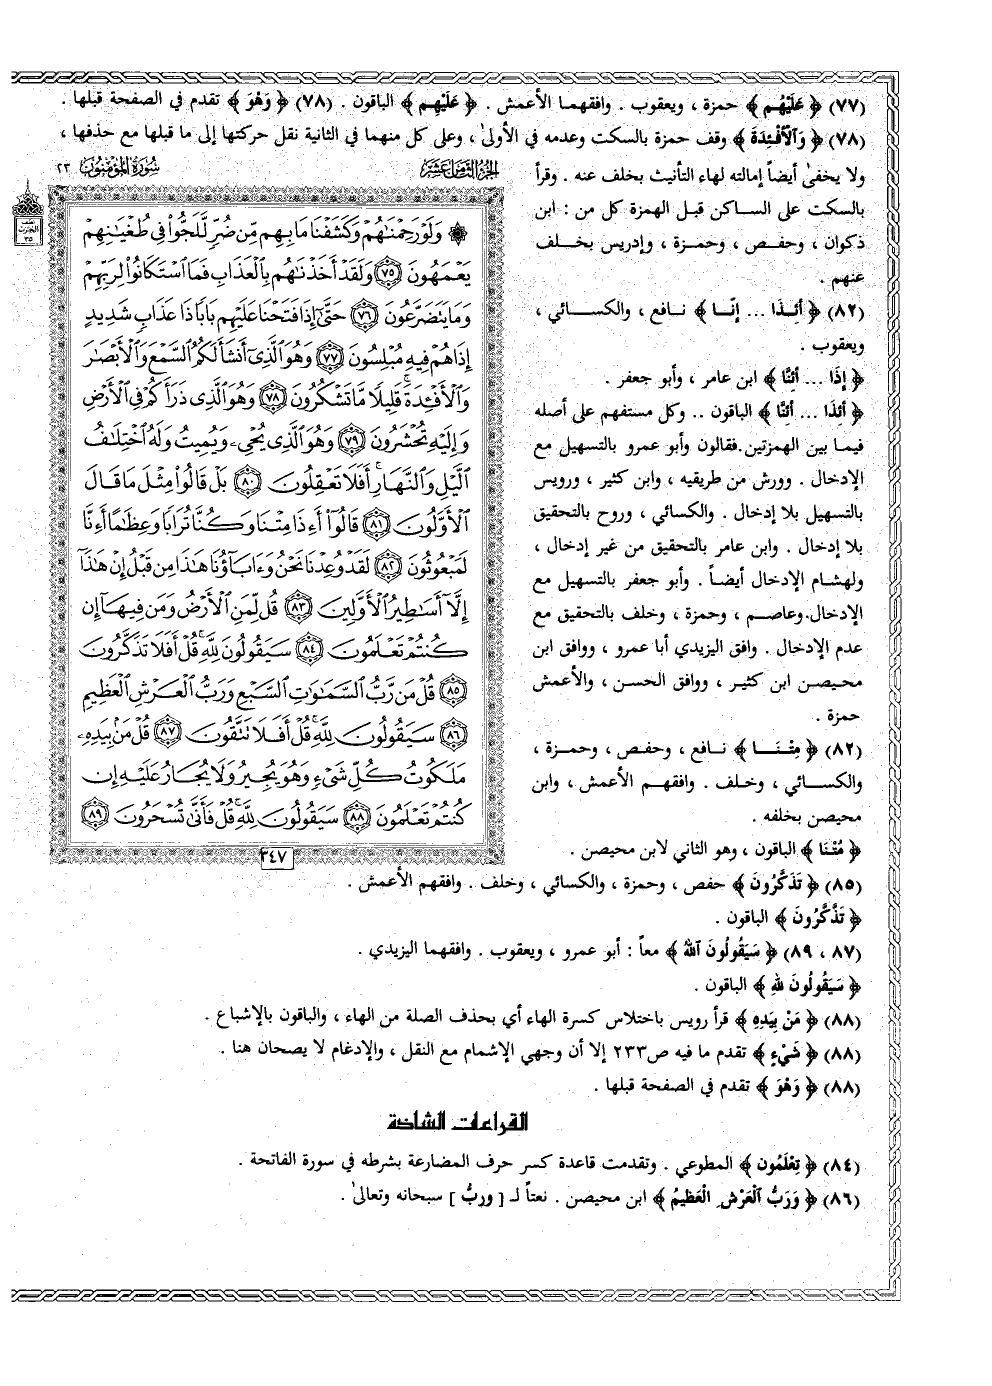 (٧٧) ﴿ عَلَيْهُم ﴾ حمزة ، ويعقوب . وافقهما الأعمش . ﴿ عَلَيْهِم ﴾ الباقون . (٧٨) ﴿ وَهُوَ ﴾ تقدم في الصفحة قبلها .
(٧٨) ﴿ وَالْأَفْئِدَةَ ﴾ وقف حمزة بالسكت وعدمه في الأولىٰ ، وعلى كل منهما في الثانية نقل حركتها إلى ما قبلها مع حذفها ،
ولا يخفىٰ أيضاً إمالته لهاء التأنيث بخلف عنه . وقرأ
بالسكت على الساكن قبل الهمزة كل من : ابن
ذكوان ، وحفص ، وحمزة ، وإدريس بخلف
عنهم .
(٨٢) ﴿ أَئِذَا ... إِنَّا ﴾ نافع ، والكسائي ،
ويعقوب .
﴿ إِذَا ... أَئِنَّا ﴾ ابن عامر ، وأبو جعفر .
﴿ أَئِذَا ... أَئِنَّا ﴾ الباقون .. وكل مستفهم على أصله
فيما بين الهمزتين.فقالون وأبو عمرو بالتسهيل مع
الإدخال . وورش من طريقيه ، وابن كثير ، ورويس
بالتسهيل بلا إدخال . والكسائي ، وروح بالتحقيق
بلا إدخال . وابن عامر بالتحقيق من غير إدخال ،
ولهشام الإدخال أيضاً . وأبو جعفر بالتسهيل مع
الإدخال.وعاصم ، وحمزة ، وخلف بالتحقيق مع
عدم الإدخال . وافق اليزيدي أبا عمرو ، ووافق ابن
محيصن ابن كثير ، ووافق الحسن ، والأعمش
حمزة .
(٨٢) ﴿ مِتْنَا ﴾ نافع ، وحفص ، وحمزة ،
والكسائي ، وخلف . وافقهم الأعمش ، وابن
محيصن بخلفه .
﴿ مُتْنَا ﴾ الباقون ، وهو الثاني لابن محيصن .
(٨٥) ﴿ تَذَكَّرُونَ ﴾ حفص ، وحمزة ، والكسائي ، وخلف . وافقهم الأعمش .
﴿ تَذَّكَّرُونَ ﴾ الباقون .
(٨٧ ، ٨٩) ﴿ سَيَقُولُونَ اللهُ ﴾ معاً : أبو عمرو ، ويعقوب . وافقهما اليزيدي .
﴿ سَيَقُولُونَ لِلهِ ﴾ الباقون .
(٨٨) ﴿ مَنْ بِيَدِهِ ﴾ قرأ رويس باختلاس كسرة الهاء أي بحذف الصلة من الهاء ، والباقون بالإشباع .
(٨٨) ﴿ شَيْءٍ ﴾ تقدم ما فيه ص٢٣٣ إلا أن وجهي الإشمام مع النقل ، والإدغام لا يصحان هنا .
(٨٨) ﴿ وَهُوَ ﴾ تقدم في الصفحة قبلها .
القراءات الشاذة
(٨٤) ﴿ تِعْلَمُون ﴾ المطوعي . وتقدمت قاعدة كسر حرف المضارعة بشرطه في سورة الفاتحة .
(٨٦) ﴿ وَرَبُّ الْعَرْشِ الْعَظِيمُ ﴾ ابن محيصن . نعتاً لـ [ وربُّ ] سبحانه وتعالىٰ .
الجزء الثامن عشر
سورة المؤمنون ٢٣
۞ وَلَوْ رَحِمْنَٰهُمْ وَكَشَفْنَا مَا بِهِم مِّن ضُرٍّ لَّلَجُّوا۟ فِى طُغْيَٰنِهِمْ
يَعْمَهُونَ ٧٥ وَلَقَدْ أَخَذْنَٰهُم بِالْعَذَابِ فَمَا اسْتَكَانُوا۟ لِرَبِّهِمْ
وَمَا يَتَضَرَّعُونَ ٧٦ حَتَّىٰٓ إِذَا فَتَحْنَا عَلَيْهِم بَابًا ذَا عَذَابٍ شَدِيدٍ
إِذَا هُمْ فِيهِ مُبْلِسُونَ ٧٧ وَهُوَ الَّذِىٓ أَنشَأَ لَكُمُ السَّمْعَ وَالْأَبْصَٰرَ
وَالْأَفْـِٔدَةَ ۚ قَلِيلًا مَّا تَشْكُرُونَ ٧٨ وَهُوَ الَّذِى ذَرَأَكُمْ فِى الْأَرْضِ
وَإِلَيْهِ تُحْشَرُونَ ٧٩ وَهُوَ الَّذِى يُحْىِۦ وَيُمِيتُ وَلَهُ اخْتِلَٰفُ
الَّيْلِ وَالنَّهَارِ ۚ أَفَلَا تَعْقِلُونَ ٨٠ بَلْ قَالُوا۟ مِثْلَ مَا قَالَ
الْأَوَّلُونَ ٨١ قَالُوٓا۟ أَءِذَا مِتْنَا وَكُنَّا تُرَابًا وَعِظَٰمًا أَءِنَّا
لَمَبْعُوثُونَ ٨٢ لَقَدْ وُعِدْنَا نَحْنُ وَءَابَآؤُنَا هَٰذَا مِن قَبْلُ إِنْ هَٰذَآ
إِلَّآ أَسَٰطِيرُ الْأَوَّلِينَ ٨٣ قُل لِّمَنِ الْأَرْضُ وَمَن فِيهَآ إِن
كُنتُمْ تَعْلَمُونَ ٨٤ سَيَقُولُونَ لِلَّهِ ۚ قُلْ أَفَلَا تَذَكَّرُونَ
٨٥ قُلْ مَن رَّبُّ السَّمَٰوَٰتِ السَّبْعِ وَرَبُّ الْعَرْشِ الْعَظِيمِ
٨٦ سَيَقُولُونَ لِلَّهِ ۚ قُلْ أَفَلَا تَتَّقُونَ ٨٧ قُلْ مَنۢ بِيَدِهِۦ
مَلَكُوتُ كُلِّ شَىْءٍ وَهُوَ يُجِيرُ وَلَا يُجَارُ عَلَيْهِ إِن
كُنتُمْ تَعْلَمُونَ ٨٨ سَيَقُولُونَ لِلَّهِ ۚ قُلْ فَأَنَّىٰ تُسْحَرُونَ ٨٩
٣٤٧